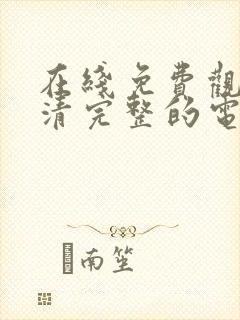 在綫免費觀
清完整的電
南笙